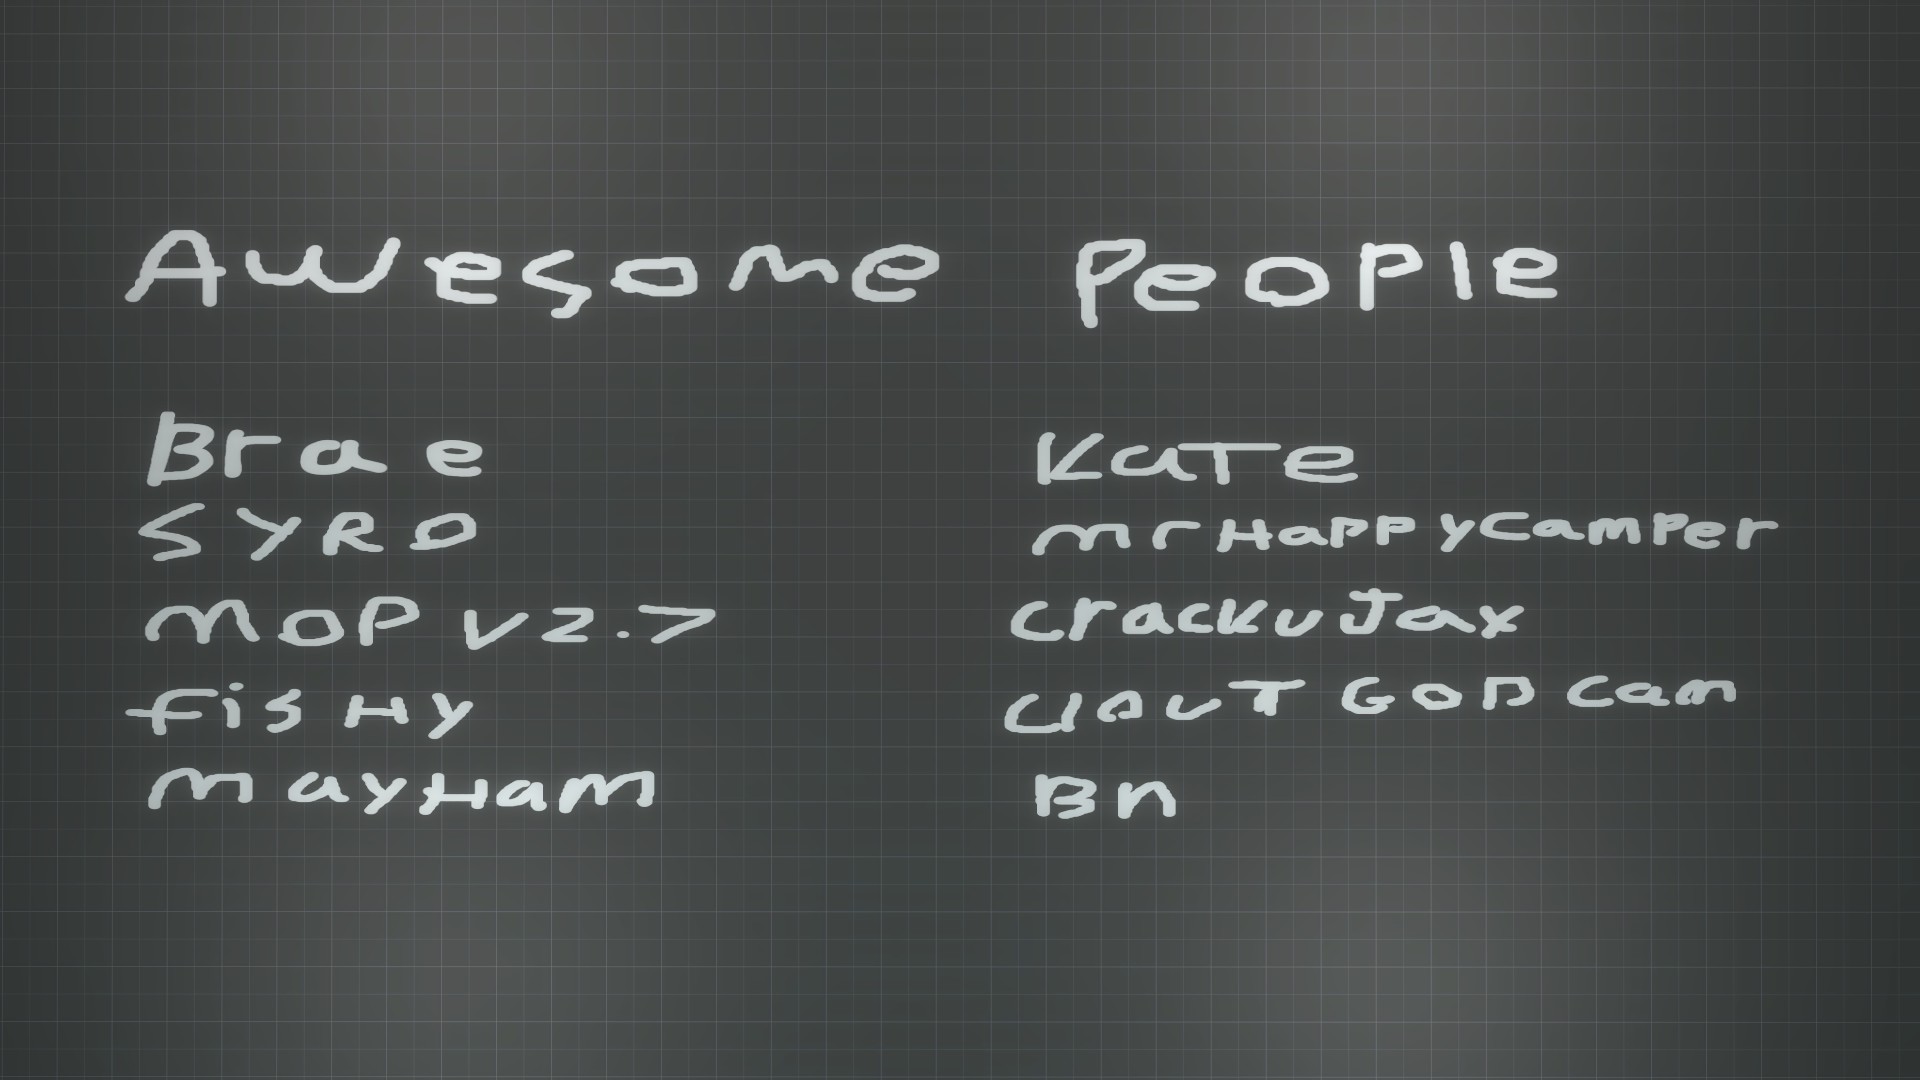 Awesome People
Brae
SYRO
MOP V2.7
fisHy
mayHam
Kate
mrHappyCamper
CrackuJax
ClouT GOD Cam
Bn